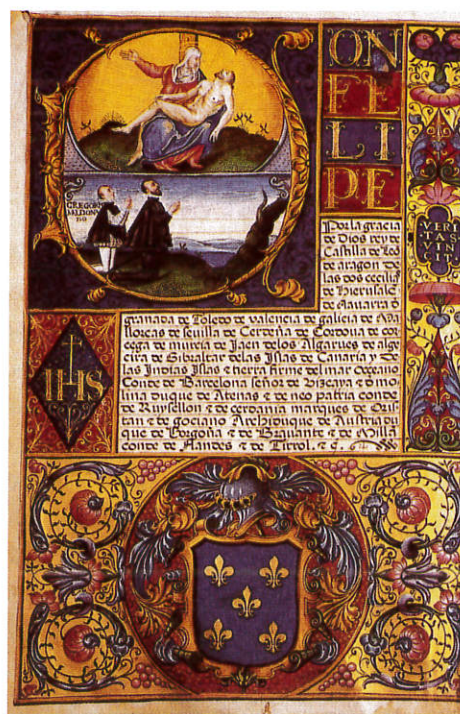 ON
FE
LI
PE
GREGORI
MALDONA
DO
Por la gracia
de Dios rey de
Castilla de Leō
de aragon de
las dos cecilias
de Hierusalē
de Nauarra d̄
granada de Toledo de valencia de galicia de Ma
lloicas de seuilla de Cerdeña de Cordoua de cor
cega de murcia de Jaen delos Algarues de alge
cira de Gibraltar delas Islas de Canaria y De
las Indias Islas & tierra firme del mar Oceano
Conde de Barcelona señor de Vizcaya & d̄ mo
lina duque de Atenas & de neo patria conde
de Ruysellon & de cerdania marques de Oris
tan & de gociano Archiduque de Austria du
que de Borgoña & de Brauante & de Milā
conde de Flandes & de Tirol. & c.
VERI
TAS
VIN
CIT
IHS